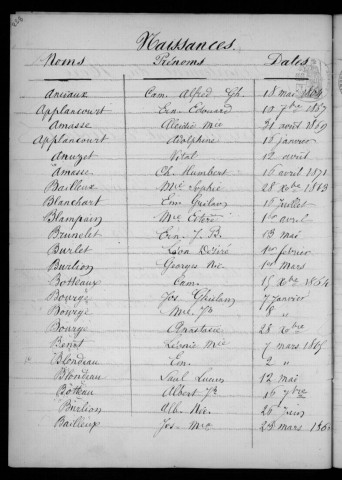 Naissances.
Noms Prénoms Dates
Anciaux Cam. Alfred Gh. 18 mai
Applancourt Ern. Edouard 10 7bre 1867
Amasse Alcidie Mie 21 août 1869
Applancourt Adolphine 16 janvier
Anuzet Vital 12 avril
Amasse Ch. Humbert 16 avril 1871
Bailleux Mie Sophie 28 Xbre 1863
Blanchart Em. Guilain 16 juillet
Blampain Mie 1er avril
Brunelet Ern. J. B. 13 mai
Burlet Désiré 1er février
Burlion Georges Nic. 1er Mars
Botteaux Cam. 15 Xbre 1864
Bourge Jos. Ghislain 7 janvier
Bourge Mie 8 "
Bourge Anastasie 28 Xbre
Benot Mie 7 mars 1865
Blondeau Em. 2 "
Blondeau Paul Lucien 12 mai
Botteau Albert 16 7bre
Burlion Alb. Nic. 26 juin
Bailleux Jos. 28 mars